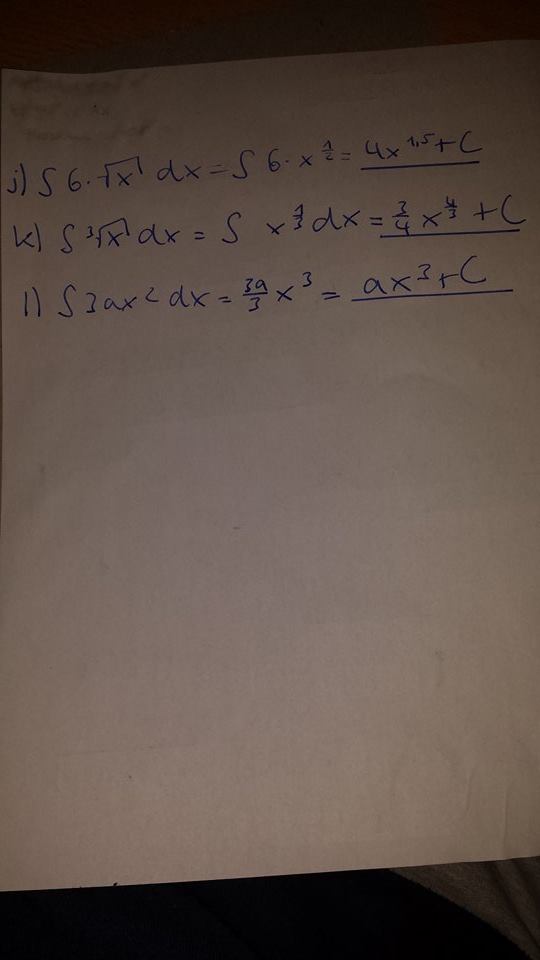 j) ∫ 6·√x dx = ∫ 6·x^½ = 4x^1,5 + C
k) ∫ ³√x dx = ∫ x^⅓ dx = ¾ x^4/3 + C
l) ∫ 3ax² dx = 3a/3 x³ = ax³ + C